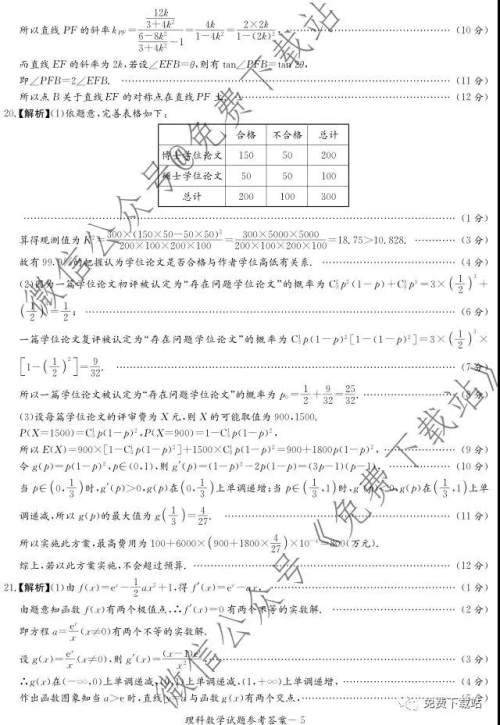 所以直线 PF 的斜率 k_PF = (12k/(3+4k²))/((6-8k²)/(3+4k²)-1) = 4k/(1-4k²) = 2×2k/(1-(2k)²). (10 分)
而直线 EF 的斜率为 2k,若设∠EFB=θ,则有 tan∠PFB=tan 2θ,
即∠PFB=2∠EFB. (11 分)
所以点 B 关于直线 EF 的对称点在直线 PF 上. (12 分)
20.【解析】(1)依题意,完善表格如下:
合格 不合格 总计
博士学位论文 150 50 200
硕士学位论文 50 50 100
总计 200 100 300
(1 分)
算得观测值为 K²=300×(150×50-50×50)²/(200×100×200×100)=300×5000×5000/(200×100×200×100)=18.75>10.828. (3 分)
故有 99.9%的把握认为学位论文是否合格与作者学位高低有关系. (4 分)
(2)因为一篇学位论文初评被认定为“存在问题学位论文”的概率为 C₃²p²(1-p)+C₃³p³=3×(1/2)³+
(1/2)³=1/2; (6 分)
一篇学位论文复评被认定为“存在问题学位论文”的概率为 C₃¹p(1-p)²[1-(1-p)²]=3×(1/2)³×
[1-(1/2)²]=9/32. (7 分)
所以一篇学位论文被认定为“存在问题学位论文”的概率为 p₀=1/2+9/32=25/32.
(3)设每篇学位论文的评审费为 X 元,则 X 的可能取值为 900,1500,
P(X=1500)=C₃¹p(1-p)²,P(X=900)=1-C₃¹p(1-p)²,
所以 E(X)=900×[1-C₃¹p(1-p)²]+1500×C₃¹p(1-p)²=900+1800p(1-p)², (9 分)
令 g(p)=p(1-p)²,p∈(0,1),则 g′(p)=(1-p)²-2p(1-p)=(3p-1)(p-1). (10 分)
当 p∈(0,1/3)时,g′(p)>0,g(p)在(0,1/3)上单调递增;当 p∈(1/3,1)时,g′(p)<0,g(p)在(1/3,1)上单
调递减,所以 g(p)的最大值为 g(1/3)=4/27. (11 分)
所以实施此方案,最高费用为 100+6000×(900+1800×4/27)×10⁻⁴=800(万元).
综上,若以此方案实施,不会超过预算. (12 分)
21.【解析】(1)由 f(x)=eˣ-1/2ax²+1,得 f′(x)=eˣ-ax. (1 分)
由题意知函数 f(x)有两个极值点,∴f′(x)=0 有两个不等的实数解. (2 分)
即方程 a=eˣ/x(x≠0)有两个不等的实数解.
设 g(x)=eˣ/x(x≠0),则 g′(x)=(x-1)eˣ/x². (3 分)
∴g(x)在(-∞,0)上单调递减,(0,1)上单调递减,(1,+∞)上单调递增, (4 分)
作出函数图象知当 a>e 时,直线y=a与函数 g(x)有两个交点,
理科数学试题参考答案-5
免费下载站
微信公众号@免费下载站
微信公众号《免费下载站》